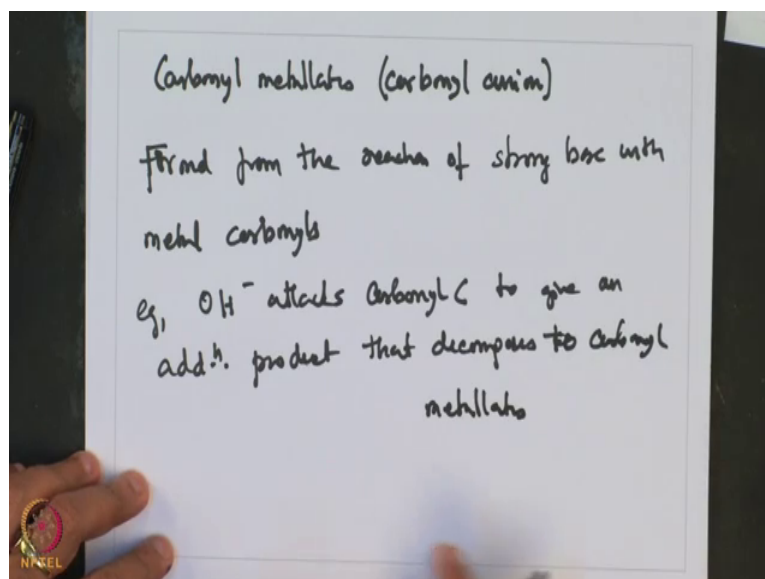 Carbonyl metallates (carbonyl anion)
Formed from the reaction of strong base with
metal carbonyls
eg, OH⁻ attacks Carbonyl C to give an
addn. product that decomposes to carbonyl
metallates
NPTEL